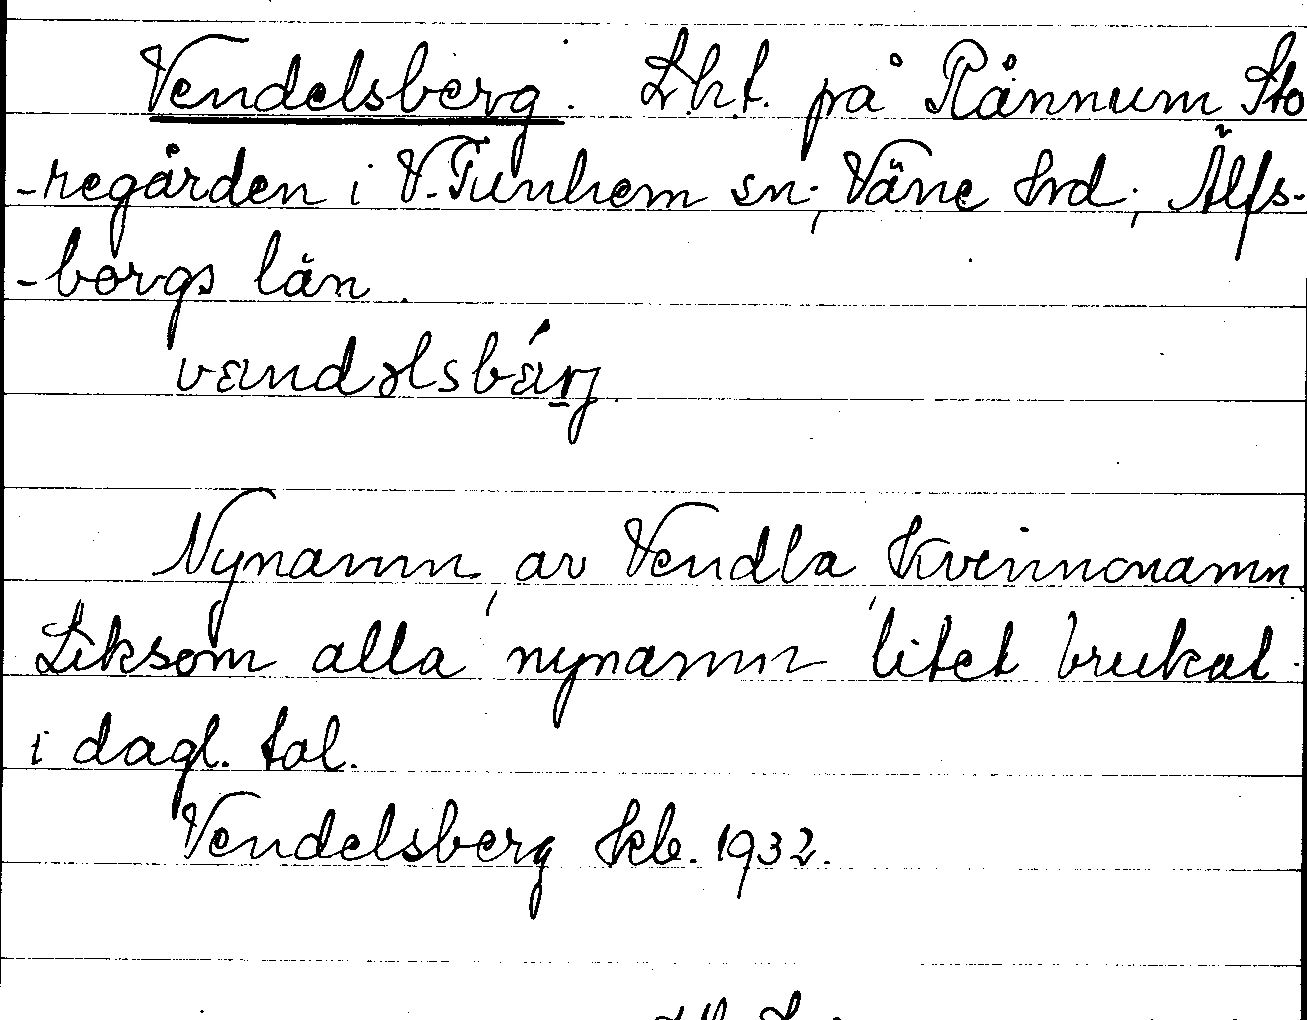 Vendelsberg. Lht. på Rånnum Sto
-regården i V. Tunhem sn; Väne hrd; Älfs-
-borgs län.
vændəlsbǽrj.
Nynamn, av Vendla, kvinnonamn.
Liksom alla nynamn litet brukat
i dagl. tal.
Vendelsberg kb. 1932.